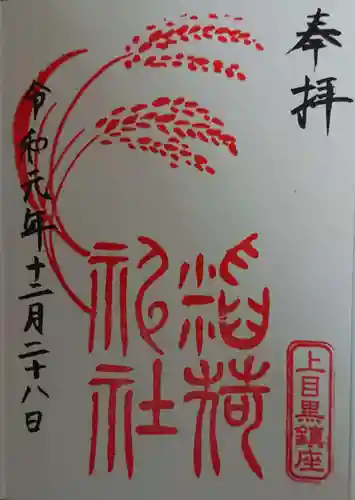 奉拝
上目黒鎮座
稲荷
祀社
令和元年十二月二十八日